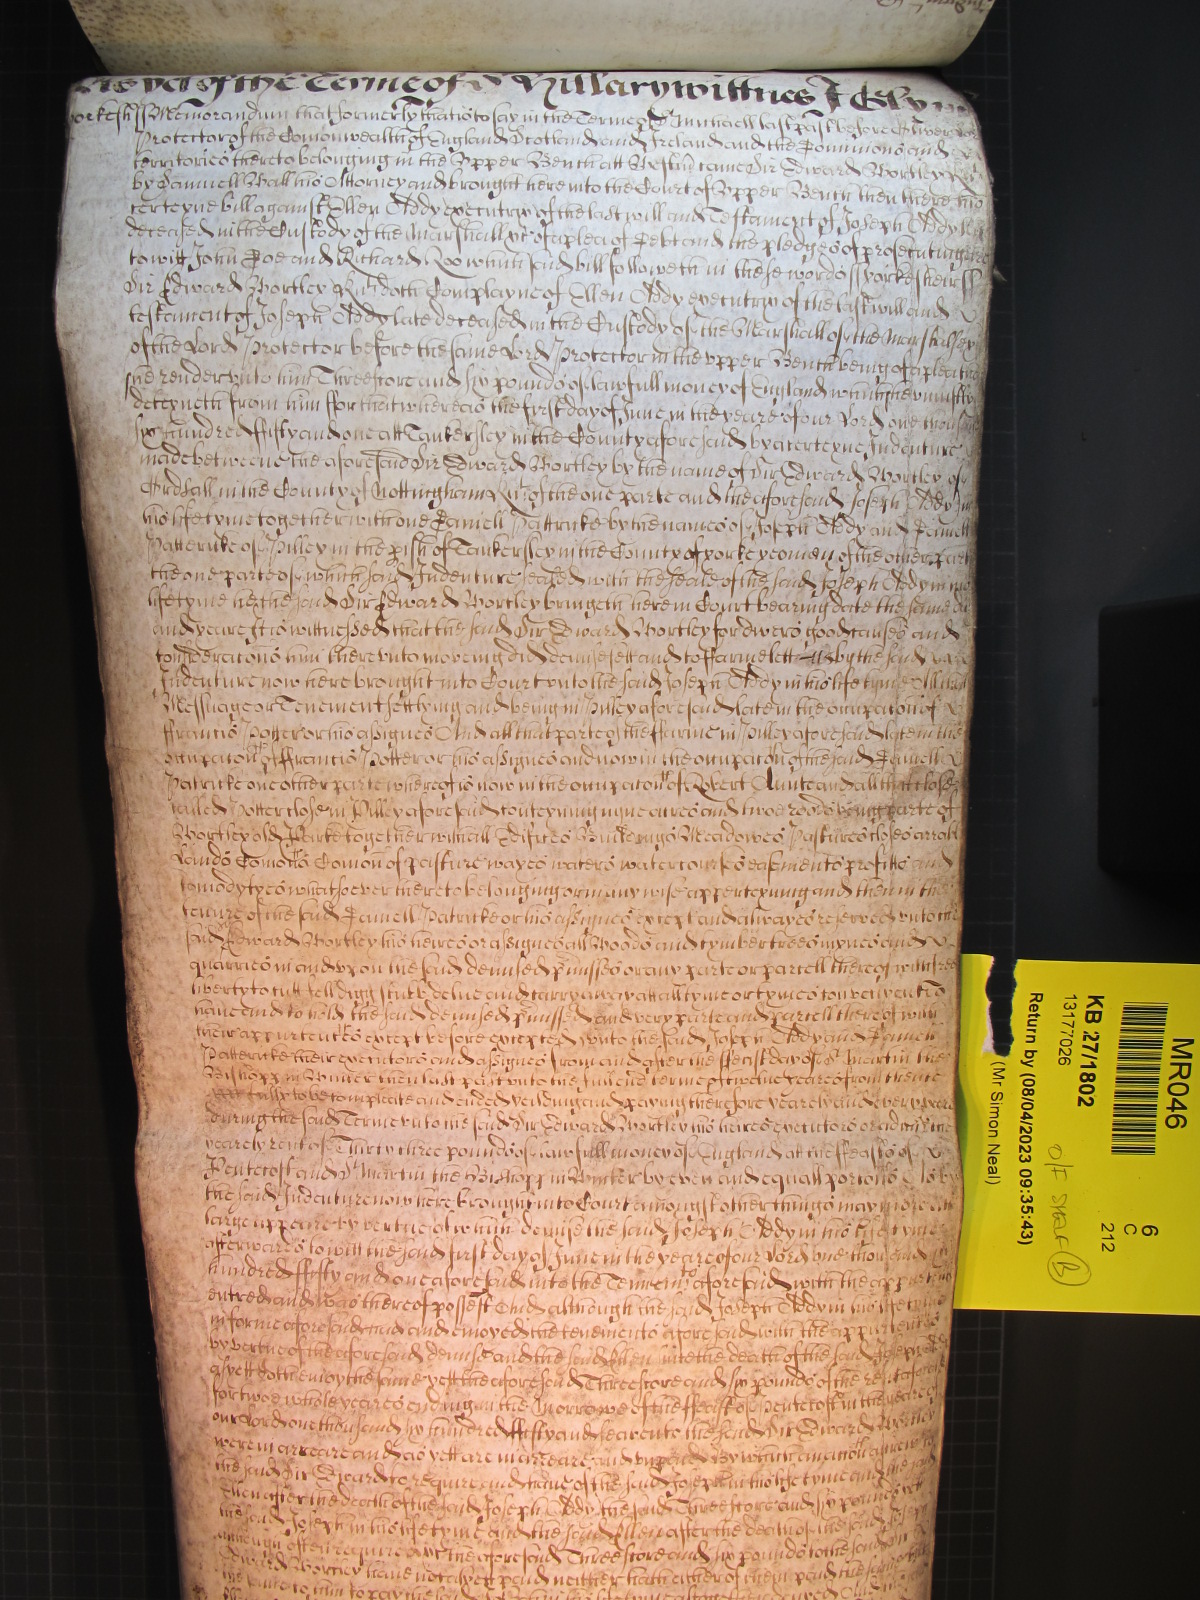 As yet of the Terme of Hillary wittnes J Glyn
Yorkesh ss Memorandum that formerly that is to say in the Terme of St Michaell last past before Oliver Lord
Protector of the Comonwealth of England Scotland and Ireland and the Dominions and
territories thereto belonging in the Upper Bench att Westmr came Sir Edward Wortley Kt
by Samuell Wall his Attorney and brought here into the Court of Upper Bench then there his
certeyne bill against Ellen Addy executrix of the last will and Testament of Joseph Addy
deceased in the Custody of the Marshall &c of a plea of Debt and the pledges of prosecuting are
to witt John Doe and Richard Roo which said bill followeth in these words ss Yorkesheir ss
Sir Edward Wortley Knt doth Complayne of Ellen Addy executrix of the last will and
testament of Joseph Addy late deceased in the Custody of the Marshall of the Marshallsey
of the Lord Protector before the same Lord Protector in the upper Bench being of a plea that
she render unto him Threescore and six pounds of lawfull money of England which shee uniustly
deteyneth from him ffor that whereas the first day of June in the yeare of our Lord one thousand
six hundred ffifty and one att Tankersley in the County aforesaid by a certeyne Indenture
made betweene the aforesaid Sir Edward Wortley by the name of Sir Edward Wortley of
Ordsall in the County of Nottingham Knt of the one parte and the aforesaid Joseph Addy in
his life tyme together with one Daniell Pattricke by the names of Joseph Addy and Daniell
Pattericke of Pilley in the pish of Tankersley in the County of yorke yeomen of the other parte
the one parte of which said Indenture sealed with the seale of the said Joseph Addy in his
life tyme hee the said Sir Edward Wortley bringeth here in Court bearing date the same day
and yeare It is witnessed that the said Sir Edward Wortley for divers good causes and
consideracions him thereunto moveing did demise sett and to ffarme lett by the said
Indenture now here brought into Court unto the said Joseph Addy in his life tyme All that
Messuage or Tenement scittying and being in Pilley aforesaid late in the occupacion of
Francis Potter or his assignes And all that parte of the ffarme in Pilley aforesaid late in the
occupacion of Francis Potter or his assignes and now in the occupacion of the said Daniell
Patricke one other parte whereof is now in the occupacion of Robert and all that close
called Potter close in Pilley aforesaid conteyning nyne acres and two roods being parte of
Wortley old Parke together with all Edifices Buildings Meadowes Pastures closes arrable
Lands Comons Comon of pasture wayes waters watercourses easments profitts and
comodytyes whatsoever thereto belonging or in any wise apperteyning and then in the
tenure of the said Daniell Patricke or his assignes except and alwayes reserved unto the
said Edward Wortley his heires or assignes all Woods and tymber trees mynes and
quarries in and upon the said demised pmisses or any parte or parcell thereof with free
liberty to cutt fell digg stubb delve and carry away att all tyme or tymes convenyent To
have and to hold the said demised pmisses and every parte and parcell thereof with
their appurtences except before excepted unto the said Joseph Addy and Daniell
Pattericke their executors and assignes from and after the ffeast day of St Martin the
Bishopp in Winter then last past unto the full end terme of twelve yeares from thence
fully to be compleate and ended yeilding and paying therefore yearely and every yeare
dureing the said Terme unto the said Sir Edward Wortley his heires executors or admrs the
yearely rent of Thirty three pounds of lawfull money of England at the ffeasts of
Pentecost and St Martin the Bishopp in Winter by even and equall porcions As by
the said Indenture now here brought into Court amongst other things may more at
large appeare by vertue of which demise the said Joseph Addy in his life tyme
afterwards to witt the said first day of June in the yeare of our Lord one thousand six
hundred ffifty and one aforesaid into the Tenements aforesaid with the appurtences
entred and was thereof possest And although the said Joseph Addy in his life tyme
in forme aforesaid had and enioyed the tenements aforesaid with the appurtences
by vertue of the aforesaid demise and the said Ellen since the death of the said Joseph
as yett doth enioy the same yett the aforesaid Threescore and six pounds of the rent aforesaid
for two whole yeares ending in the Morrowe of the ffeast of Pentecost in the yeare of
our Lord one thousand six hundred ffifty and seaven to the said Sir Edward Wortley
were in arreare and as yett are in arreare and unpaid By which an accion accrewed to
the said Sir Edward to require and have of the said Joseph in his life tyme and the said
Ellen after the death of the said Joseph Addy the said Threescore and six pounds yett
the said Joseph in his life tyme and the said Ellen after the death of the said Joseph
although often required &c the aforesaid Threescore and six pounds to the said Sir
Edward Wortley have not as yet paid neither hath either of them paid the same but
MR046
KB 27/1802
13177026
Return by (08/04/2023 09:35:43)
(Mr Simon Neal)
6
C
212
O/F